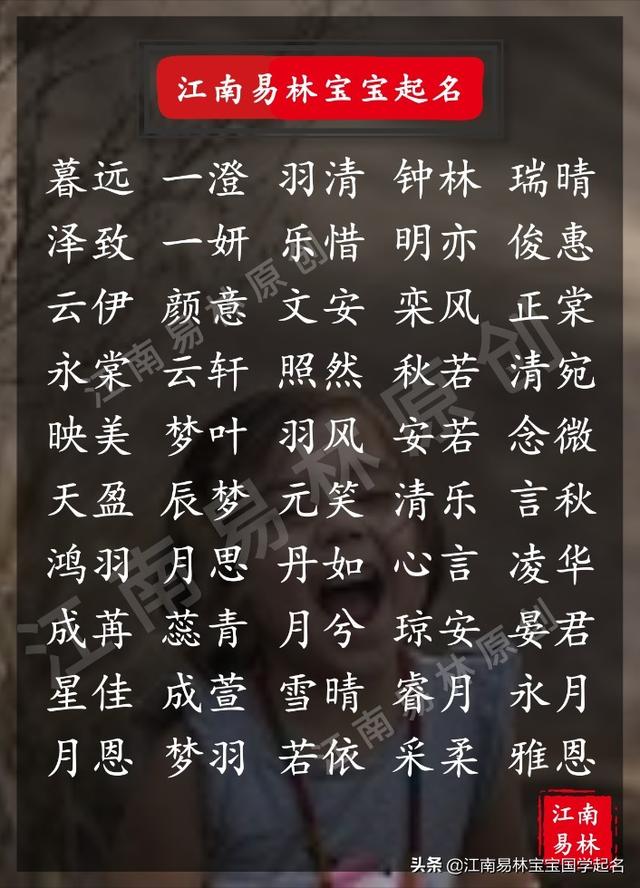 江南易林宝宝起名
暮远 一澄 羽清 钟林 瑞晴
泽致 一妍 乐惜 明亦 俊惠
云伊 颜意 文安 栾风 正棠
永棠 云轩 照然 秋若 清宛
映美 梦叶 羽风 安若 念微
天盈 辰梦 元笑 清乐 言秋
鸿羽 月思 丹如 心言 凌华
成苒 蕊青 月兮 琼安 晏君
星佳 成萱 雪晴 睿月 永月
月恩 梦羽 若依 采柔 雅恩
江南易林原创
江南易林原创
江南易林原创
江南
易林
头条 @江南易林宝宝国学起名